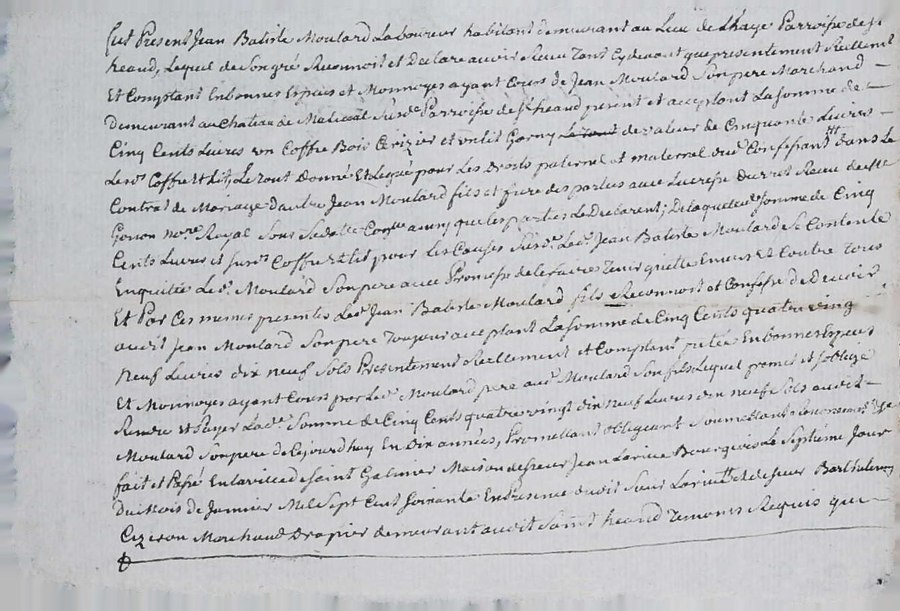 fut Present Jean Batiste Moulard Laboureur habitant demeurant au Lieu de Lhaye Parroisse de St
heand, Lequel de Son gré Reconnoit et Declare avoir Receu Tant Cydevant que presentement Reellemt
Et Comptant En bonnes Especes et Monnoyes ayant Cours de Jean Moulard Son pere Marchand
Demeurant au Chateau de Malleval Susde Parroisse de St heand present et acceptant La Somme de
Cinq Cents Livres un Coffre Bois Cerizier et un lit Garny Le tout de valeur de Cinquante Livres
Lesd. Coffre et lit, Le tout Donné et Legué pour Les Droits paternel et maternel dud. Confessant dans Le
Contrat de Mariage d'autre Jean Moulard fils et frere des parties avec Lucresse Receu de Me
Gonon Nore Royal Sous Sa datte ainsy que les parties Le Declarent; De laquelle Somme de Cinq
Cents Livres et Susd. Coffre et lit pour Les Causes Susd. Led. Jean Batiste Moulard Se Contente
En quitte Led. Moulard Son pere avec Promesse de Le faire Tenir quitte Envers et Contre tous
Et Par Ces mêmes presentes Led. Jean Batiste Moulard fils Reconnoit et Confesse De Devoir
audit Jean Moulard Son pere Toujours acceptant La Somme de Cinq Cents quatre ving
Neuf Livres dix neuf Sols Presentement Reellement et Comptant pretée En bonnes Especes
Et Monnoyes ayant Cours par Led. Moulard pere aud. Moulard Son fils Lequel promet et S'oblige
Rendre et Payer Lade Somme de Cinq Cents quatre vingt dix Neuf Livres dix neuf Sols audit
Moulard Son pere D'ajourdhuy En Dix années, Promettant obligeant Soumettant Renonceant
fait et Passé En la ville de Saint Galmier Maison de Sieur Jean Larive Bourgeois Le Septiéme Jour
Du Mois de Janvier Mil Sept Cent Soixante En Presence dudit Sieur Larive et de Sieur Barthelemy
Cizeron Marchand Drapier demeurant audit Saint heand Temoins Requis que